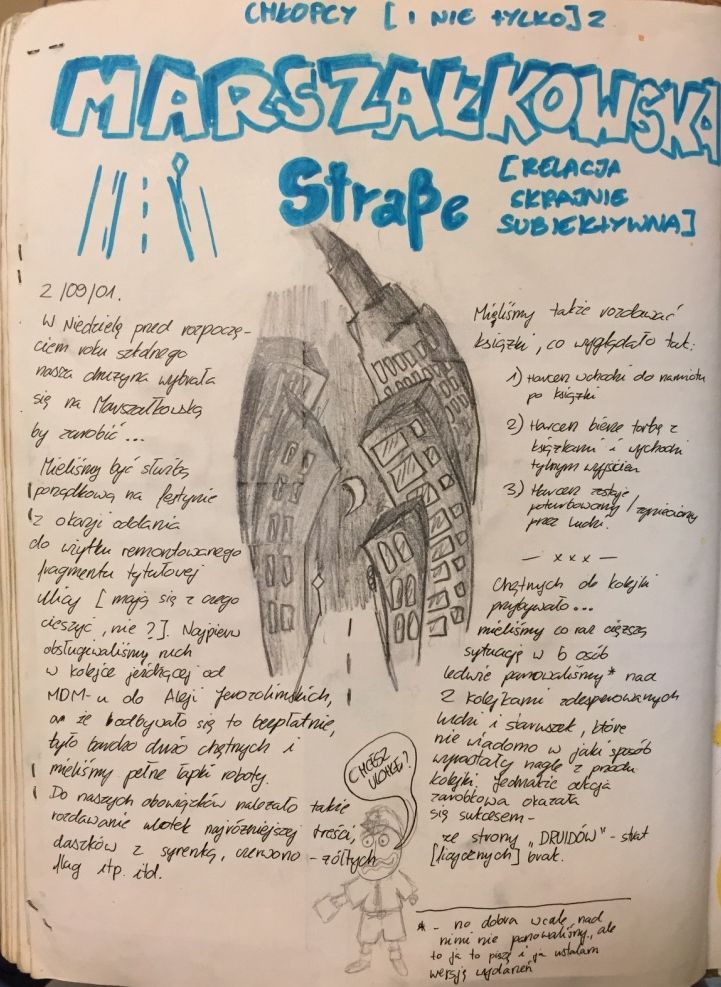 CHŁOPCY [I NIE TYLKO] Z
MARSZAŁKOWSKA
Straße
[RELACJA
SKRAJNIE
SUBIEKTYWNA]
2/09/01.
W Niedzielę przed rozpoczę-
ciem roku szkolnego
nasza drużyna wybrała
się na Marszałkowską
by zarobić...
Mieliśmy być służbą
porządkową na festynie
z okazji oddania
do użytku remontowanego
fragmentu tytułowej
ulicy [mają się z czego
cieszyć, nie?]. Najpierw
obsługiwaliśmy ruch
w kolejce jeżdżącej od
MDM-u do Aleji Jerozolimskich,
a że odbywało się to bezpłatnie,
było bardzo dużo chętnych i
mieliśmy pełne łapki roboty.
Do naszych obowiązków należało także
rozdawanie ulotek najróżniejszej treści,
daszków z syrenką, czerwono-żółtych
flag itp. itd.
CHCESZ
ULOTKĘ?
Mieliśmy także rozdawać
książki, co wyglądało tak:
1) Harcerz wchodzi do namiotu
po książki
2) Harcerz bierze torbę z
książkami i wychodzi
tylnym wyjściem
3) Harcerz zostaje
poturbowany / zgnieciony
przez ludzi.
— x x x —
Chętnych do kolejki
przybywało...
mieliśmy co raz cięższą
sytuację w 6 osób
ledwie panowaliśmy* nad
2 kolejkami zdesperowanych
ludzi i staruszek, które
nie wiadomo w jaki sposób
wyrastały nagle z przodu
kolejki. Jednakże akcja
zarobkowa okazała
się sukcesem-
ze strony „DRUIDÓW" - strat
[fizycznych] brak.
* - no dobra wcale nad
nimi nie panowaliśmy, ale
to ja to piszę i ja ustalam
wersję wydarzeń